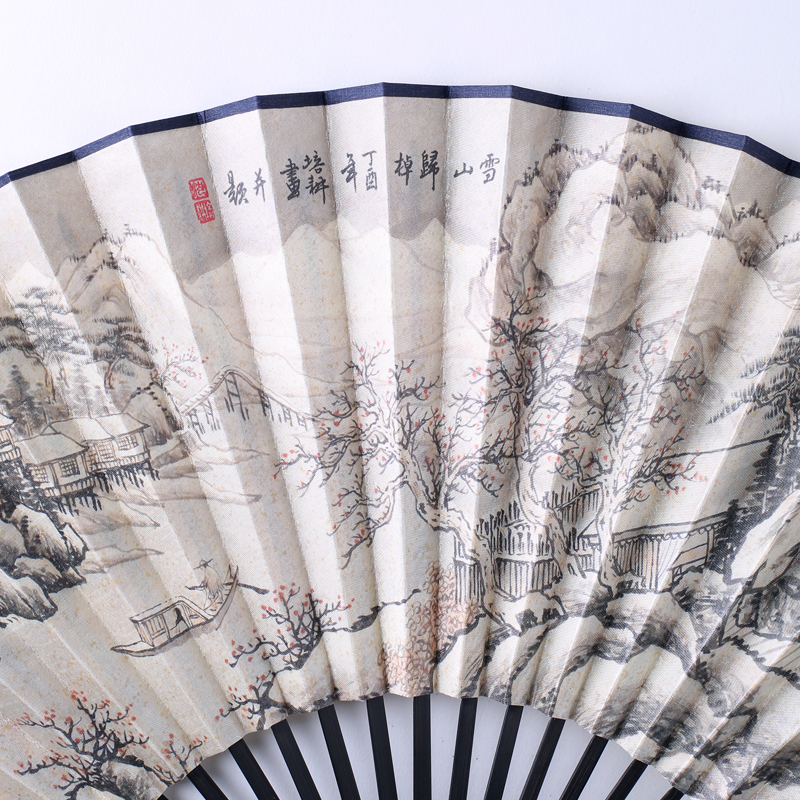 雪山
歸棹
丁酉年
培耕畫
并題